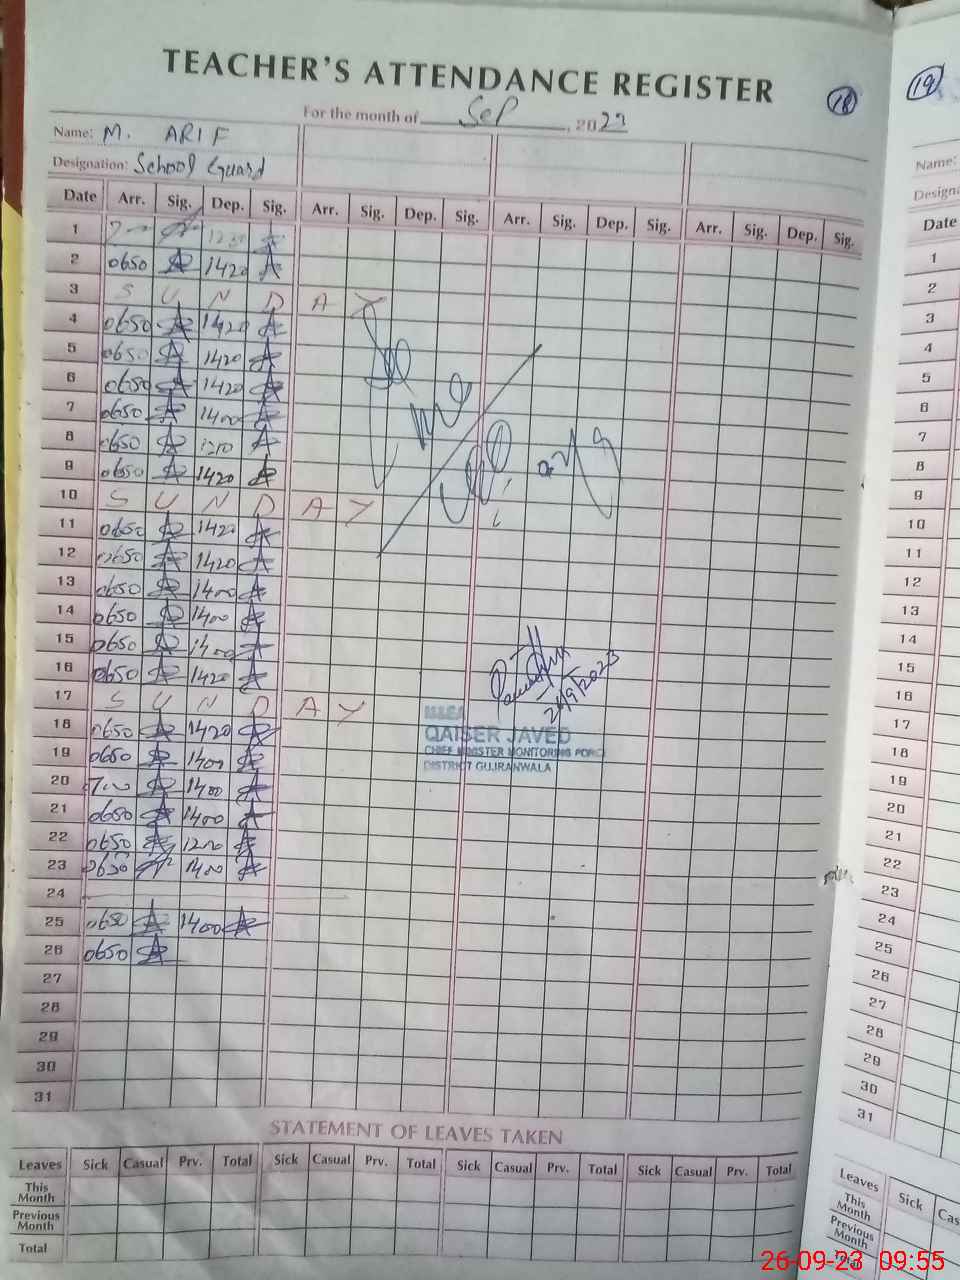 TEACHER'S ATTENDANCE REGISTER
18
For the month of Sep, 2023
Name: M. ARIF
Designation: School Guard
Date Arr. Sig. Dep. Sig. Arr. Sig. Dep. Sig. Arr. Sig. Dep. Sig. Arr. Sig. Dep. Sig.
1 1230
2 0650 1420
3 S U N D A Y
4 0650 1420
5 0650 1420
6 0650 1420
7 0650 1400
8 0650 1200
9 0650 1420
10 S U N D A Y
11 0650 1420
12 0650 1420
13 0650 1400
14 0650 1400
15 0650 1400
16 0650 1420
17 S U N D A Y
18 0650 1420
19 0650 1400
20 700 1400
21 0650 1400
22 0650 1200
23 0650 1400
24
25 0650 1400
26 0650
27
28
29
30
31
M&EA
QAISER JAVED
CHIEF MINISTER MONITORING FORC
DISTRICT GUJRANWALA
STATEMENT OF LEAVES TAKEN
Leaves Sick Casual Prv. Total Sick Casual Prv. Total Sick Casual Prv. Total Sick Casual Prv. Total
This Month
Previous Month
Total
19
Name:
Date
1
2
3
4
5
6
7
8
9
10
11
12
13
14
15
16
17
18
19
20
21
22
23
24
25
26
27
28
29
30
31
Leaves Sick
This Month
Previous Month
26-09-23 09:55